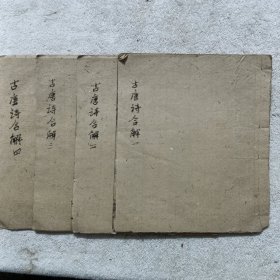 古唐诗合解一
古唐诗合解二
古唐诗合解三
古唐诗合解四